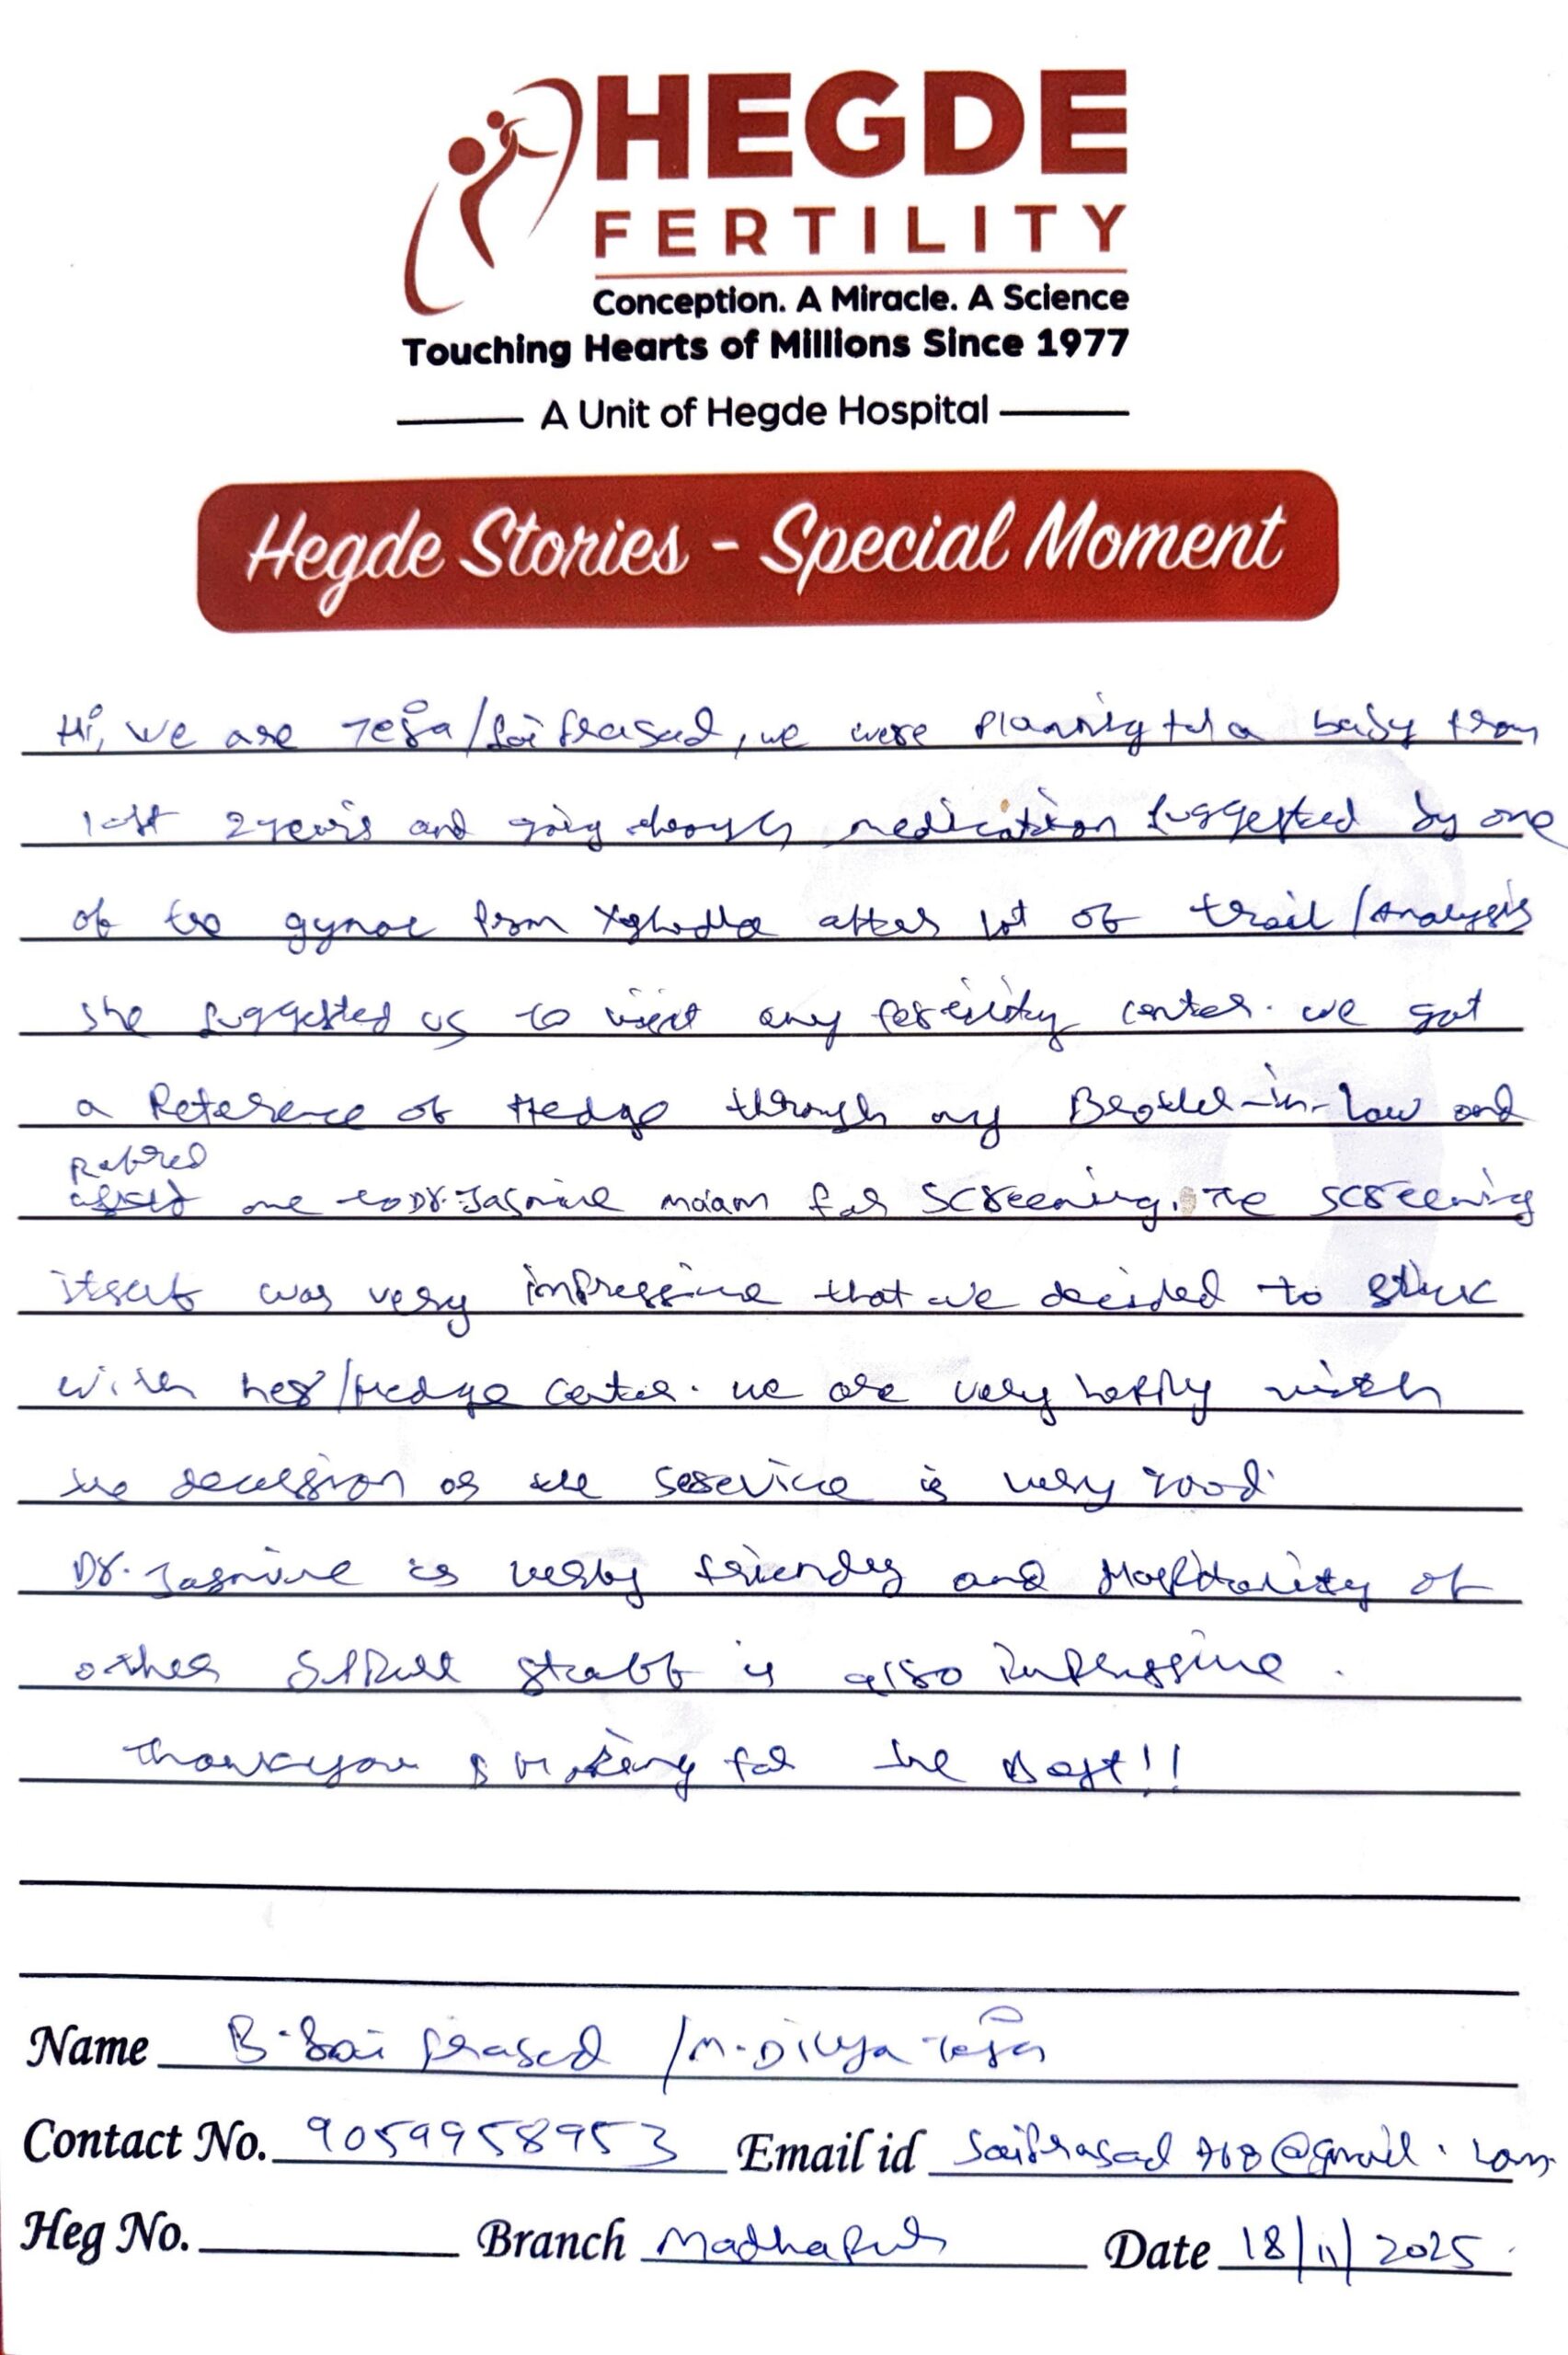 HEGDE
FERTILITY
Conception. A Miracle. A Science
Touching Hearts of Millions Since 1977
A Unit of Hegde Hospital
Hegde Stories - Special Moment
Hi, we are Teja/Sai Prasad, we were planning for a baby from
last 2 years and going through medication suggested by one
of the gynac from after lot of trail/Analysis
she suggested us to visit any fertility center. we got
a Reference of Hedge through my Brother-in-Law and
refered
me to Dr. Jasmine ma'am for screening. The screening
itself was very impressive that we decided to stick
with her/Hedge center. we are very happy with
the decession as the seservice is very good.
Dr. Jasmine is very friendly and Hospitality of
other staff is also impressive.
Thankyou & for the Best!!
Name B. Sai Prasad / M. Divya Teja
Contact No. 9059958953 Email id saiprasad768@gmail.com
Heg No. Branch Madhapur Date 18/11/2025